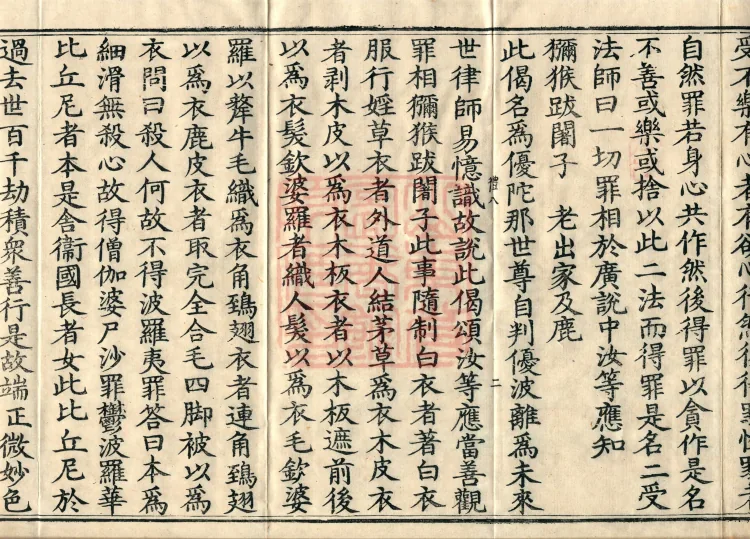 自然罪若身心共作然後得罪以貪作是名
不善或樂或捨以此二法而得罪是名二受
法師曰一切罪相於廣說中汝等應知
獼猴跋闍子　老出家及鹿
此偈名爲優陀那世尊自判優波離爲未來
禮八　二
世律師易憶識故說此偈頌汝等應當善觀
罪相獼猴跋闍子此事隨制白衣者著白衣
服行婬草衣者外道人結茅草爲衣木皮衣
者剥木皮以爲衣木板衣者以木板遮前後
以爲衣髮欽婆羅者織人髮以爲衣毛欽婆
羅以犛牛毛織爲衣角鵄翅衣者連角鵄翅
以爲衣鹿皮衣者取完全合毛四脚被以爲
衣問曰殺人何故不得波羅夷罪答曰本爲
細滑無殺心故得僧伽婆尸沙罪鬱波羅華
比丘尼者本是舍衞國長者女此比丘尼於
過去世百千劫積衆善行是故端正微妙色